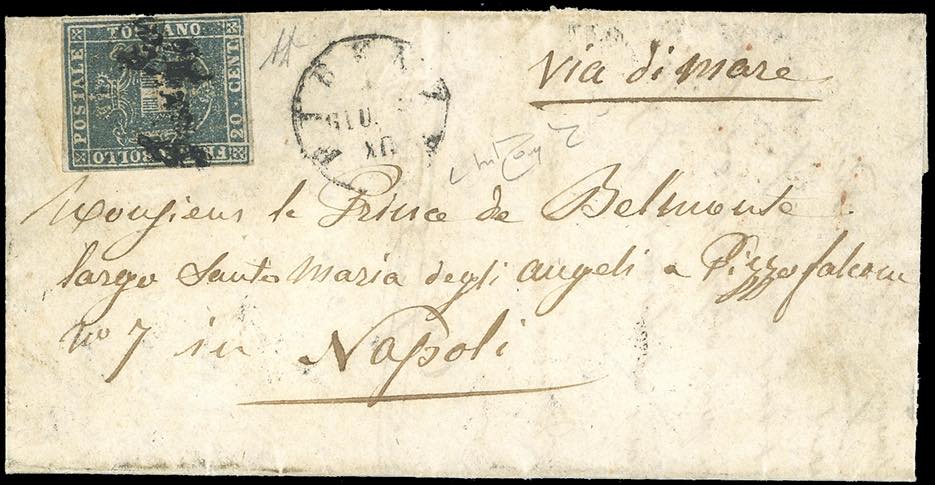 FRANCOBOLLO POSTALE TOSCANO 20 CENT.
GIU.
Via di mare
Monsieur le Prince de Belmonte
largo Santa Maria degli angeli a Pizzofalcone
No 7 in
Napoli